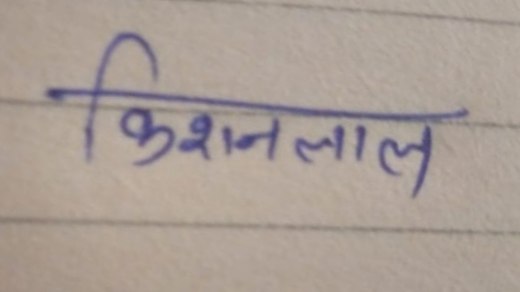 किशनलाल